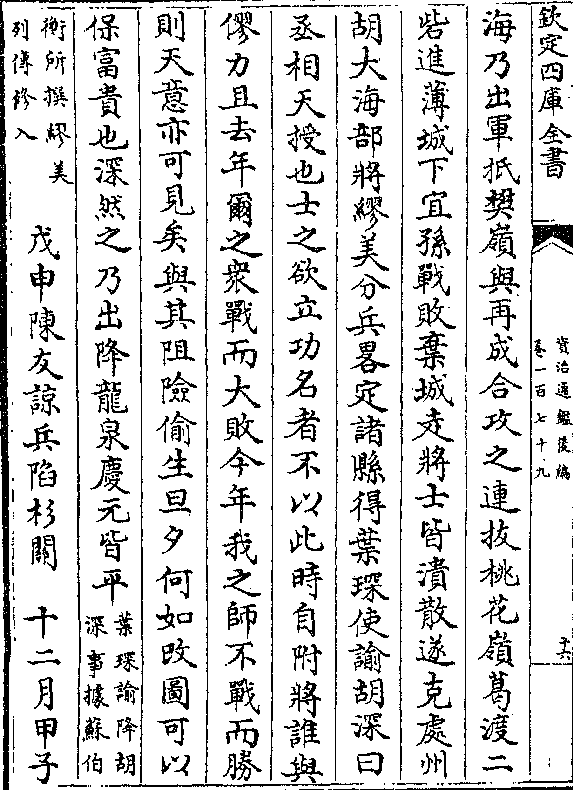 欽定四庫全書
資治通鑑後編
卷一百七十九
海乃出軍抵樊嶺與再成合攻之連拔桃花嶺葛渡二
砦進薄城下宜孫戰敗棄城走將士皆潰散遂克處州
胡大海部將繆美分兵畧定諸縣得葉琛使諭胡深曰
丞相天授也士之欲立功名者不以此時自附將誰與
僇力且去年爾之衆戰而大敗今年我之師不戰而勝
則天意亦可見矣與其阻險偷生旦夕何如改圖可以
保富貴也深然之乃出降龍泉慶元皆平
葉琛諭降胡
深事據蘇伯
衡所撰繆美
列傳修入
戊申陳友諒兵陷杉關　十二月甲子